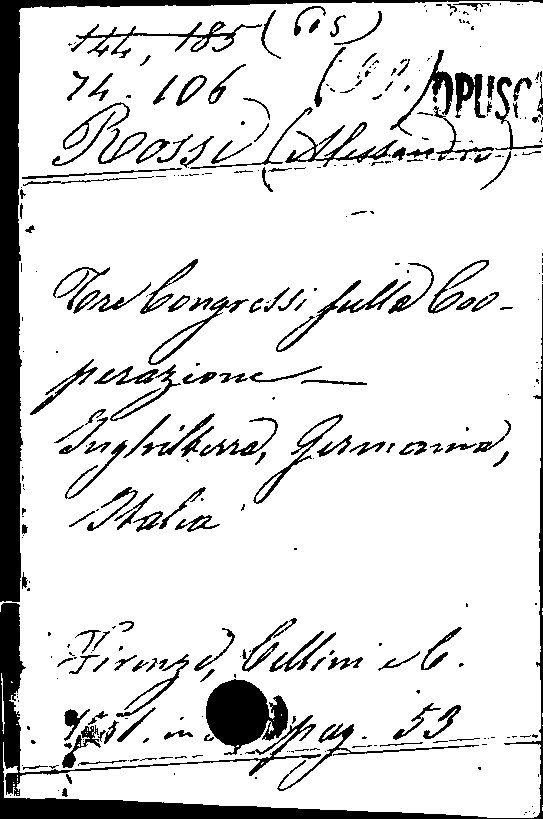 144, 185 (bis)
74. 106
OPUSC
Rossi (Alessandro)
Tre Congressi sulla Coo-
perazione —
Inghilterra, Germania,
Italia
Firenze, Cellini e C.
in pag. 53